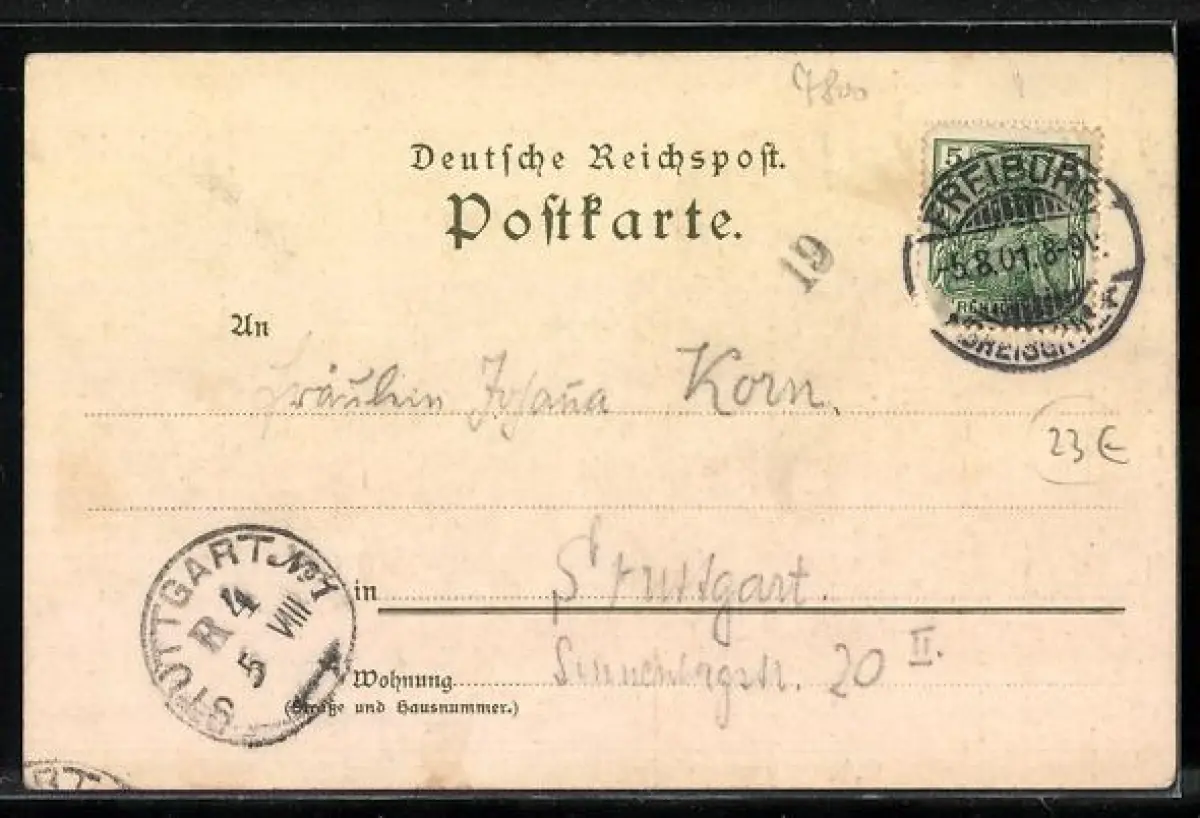 7800
Deutsche Reichspost.
Postkarte.
5 5
FREIBURG
-5.8.01.8-9
19
An
Fräulein Johana Korn.
23€
STUTTGART No 1
R 4
5 VIII
in Stuttgart.
Wohnung 20 II.
(Straße und Hausnummer.)
RT